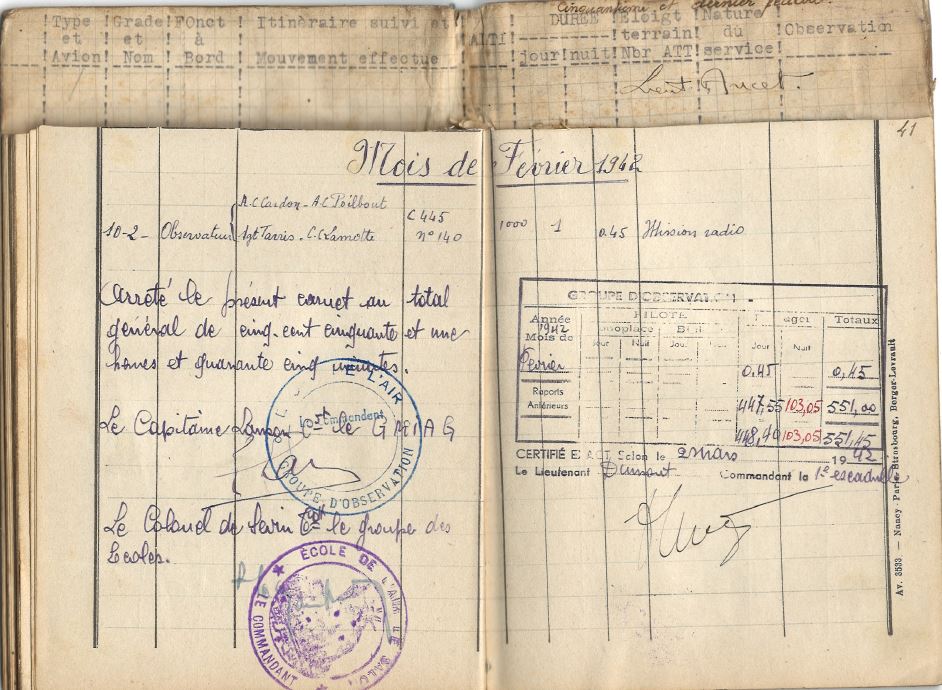 Cinquantième et dernier feuillet.
Type et Avion
Grade et Nom
FOnct à Bord
Itinèraire suivi et Mouvement effectue
ALTI
DURÉE
jour nuit
Eloigt terrain
Nbr ATT
Nature du service
Observation
Lieut
41
Mois de Février 1942
10-2 - Observateur
A.C Cardon - A.C Poilbout
Sgt Tarris - C.C Lamotte
C 445
n° 140
1000 1 0.45 Mission radio
Arrêté le présent carnet au total
général de cinq cent cinquante et une
heures et quarante cinq minutes.
Le Capitaine Cdt le
L'AIR
Commandant
GROUPE D'OBSERVATION
Le Colonel de Cdt le groupe des
Ecoles.
ÉCOLE DE L'AIR
LE COMMANDANT
GROUPE D'OBSERVATION
Année
1942
Mois de
Février
PILOTE
Jour Nuit Jour
Jour Nuit
Totaux
0,45 0,45
Reports
Antérieurs
447,55 103,05 551,00
448,40 103,05 551,45
CERTIFIÉ EXACT Selon le 2 mars 1942
Le Lieutenant Dumont Commandant la 1e escadrille
Av. 3533 — Nancy-Paris-Strasbourg, Berger-Levrault